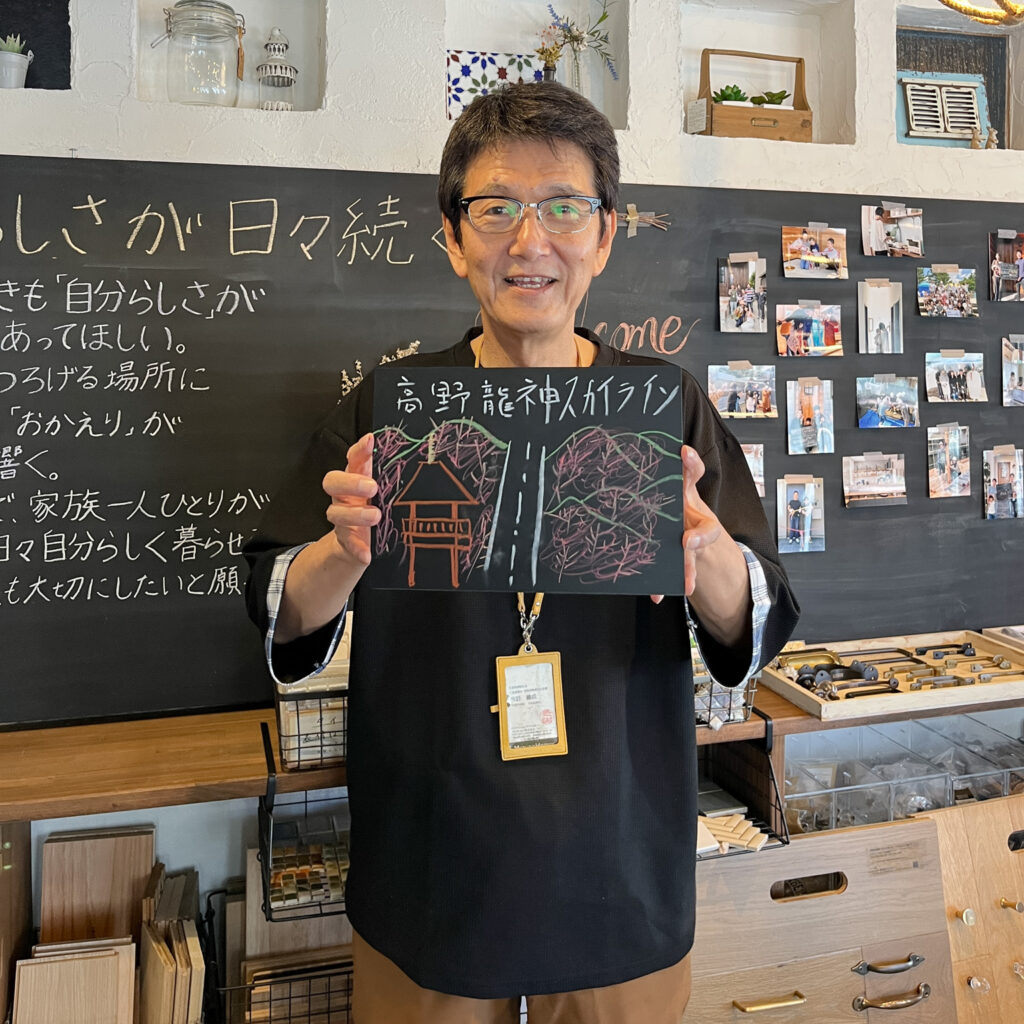 らしさが日々続く
きも「自分らしさ」が
あってほしい。
つろげる場所に
「おかえり」が
響く。
で、家族一人ひとりが
日々自分らしく暮らせ
も大切にしたいと願
come
高野龍神スカイライン